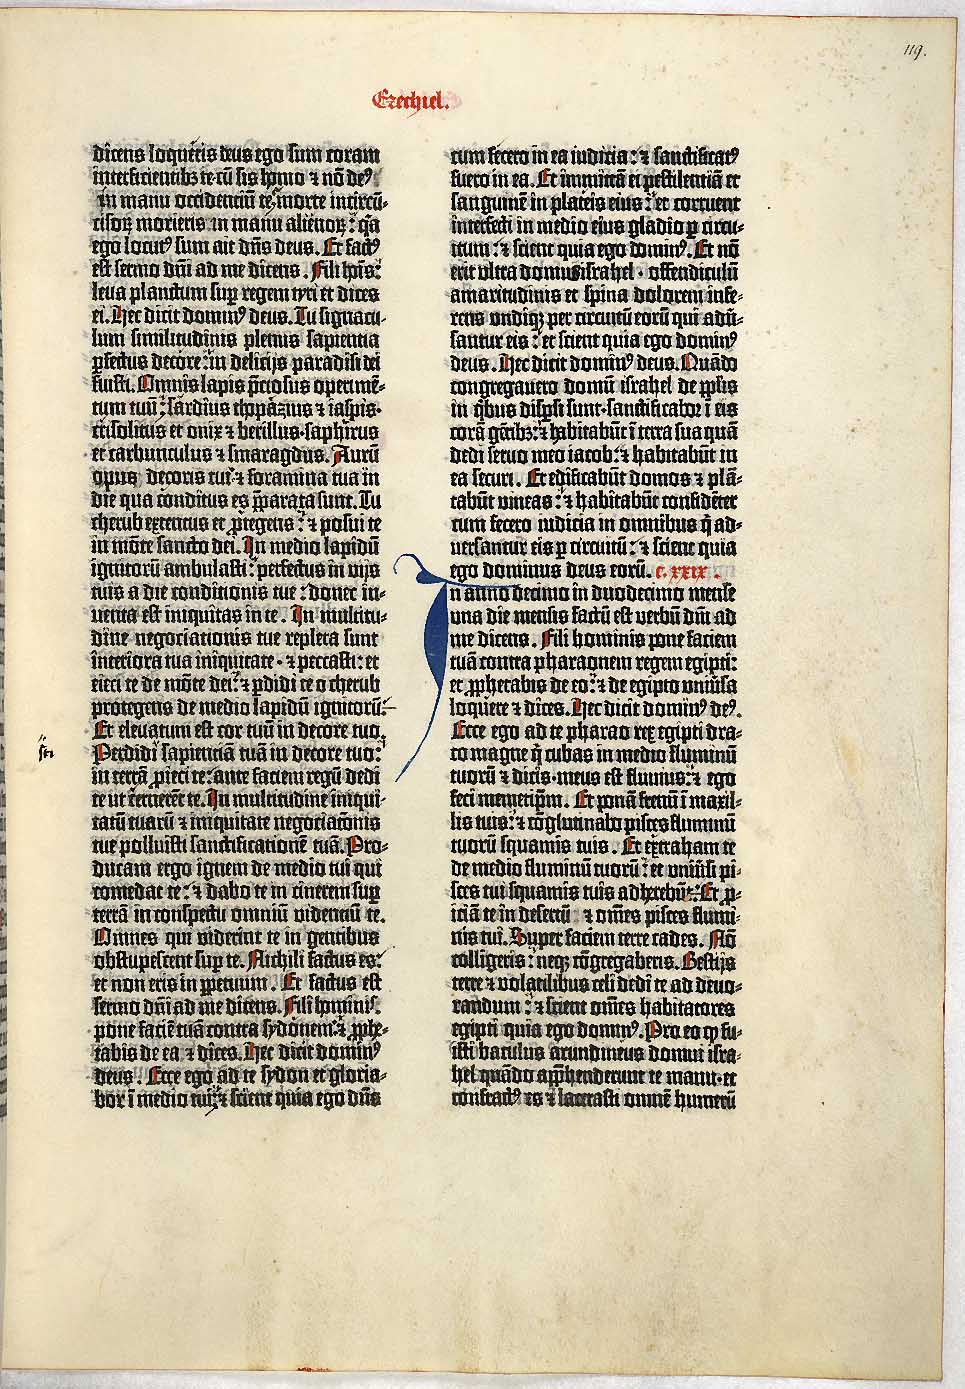 119.
Ezechiel.
dicens loqueris deus ego sum coram
interficientibꝫ te cū sis homo ⁊ nō deꝰ
in manu occidenciū te: morte incircū-
cisoꝝ morieris in manu alienoꝝ: q̄a
ego locutꝰ sum ait dn̄s deus. Et factꝰ
est sermo dn̄i ad me dicens. Fili hoı̄s:
leva planctum suꝑ regem tyri et dices
ei. Hec dicit dominꝰ deus. Tu signacu-
lum similitudinis plenus sapientia
ꝑfectus decore: in delicijs paradisi dei
fuisti. Omnis lapis p̄ciosus operimē-
tum tuū: sardius thopazius ⁊ iaspis·
crisolitus et onix ⁊ berillus·saphirus
et carbunculus ⁊ smaragdus. Aurū
opus decoris tui: ⁊ foramina tua in
die qua conditus es p̄parata sunt. Tu
cherub extentus et ꝓtegens: ⁊ posui te
in mōte sancto dei. In medio lapidū
ignitorū ambulasti: perfectus in vijs
tuis a die conditionis tue: donec in-
venta est iniquitas in te. In multitu-
dine negociationis tue repleta sunt
interiora tua iniquitate·⁊ peccasti: et
eieci te de mōte dei: ⁊ ꝑdidi te o cherub
protegens de medio lapidū ignitorū:
Et elevatum est cor tuū in decore tuo.
Perdidi sapientiā tuā in decore tuo:
in terrā ꝓieci te: ante faciem regū dedi
te ut cernerēt te. In multitudine iniqui-
tatū tuarū ⁊ iniquitate negociatōnis
tue polluisti sanctificationē tuā. Pro-
ducam ergo ignem de medio tui qui
comedat te: ⁊ dabo te in cinerem suꝑ
terrā in conspectu omniū videntiū te.
Omnes qui viderint te in gentibus
obstupescent suꝑ te. Nichili factus es:
et non eris in ꝑpetuum. Et factus est
sermo dn̄i ad me dicens. Fili hominis
pone faciē tuā contra sydonem: ⁊ ꝓphe-
tabis de ea ⁊ dices. Hec dicit dominꝰ
deus. Ecce ego ad te sydon et gloria-
bor ī medio tui: ⁊ scient quia ego dn̄s
cum fecero in ea iudicia: ⁊ sanctificatꝰ
fuero in ea. Et immittā ei pestilentiā et
sanguinē in plateis eius: et corruent
interfecti in medio eius gladio ꝑ circu-
itum: ⁊ scient quia ego dominꝰ. Et nō
erit ultra domui israhel·offendiculū
amaritudinis et spina dolorem infe-
rens undiqꝫ per circuitū eorū qui adū-
santur eis: et scient quia ego dominꝰ
deus. Hec dicit dominꝰ deus. Quādo
congregavero domū israhel de ppl̄is
in q̄bus disꝑsi sunt·sanctificabor ī eis
corā gētibꝫ: ⁊ habitabūt ī terra sua quā
dedi servo meo iacob: ⁊ habitabūt in
ea securi. Et edificabūt domos ⁊ plā-
tabūt vineas: ⁊ habitabūt confidēter
cum fecero iudicia in omnibus q̄ ad-
versantur eis ꝑ circuitū: ⁊ scient quia
ego dominus deus eorū. c. xxix.
In anno decimo in duodecimo mense
una die mensis factū est verbū dn̄i ad
me dicens. Fili hominis pone faciem
tuā contra pharaonem regem egipti:
et ꝓphetabis de eo: ⁊ de egipto univ̄sa
loquere ⁊ dices. Hec dicit dominꝰ deꝰ.
Ecce ego ad te pharao rex egipti dra-
co magne q̄ cubas in medio fluminū
tuorū ⁊ dicis·meus est fluvius: ⁊ ego
feci memetip̄m. Et ponā frenū ī maxil-
lis tuis: ⁊ cōglutinabo pisces fluminū
tuorū squamis tuis. Et extraham te
de medio fluminū tuorū: et univ̄si pi-
sces tui squamis tuis adherebūt: Et ꝓ-
iciā te in desertū ⁊ om̄es pisces flumi-
nis tui. Super faciem terre cades. Nō
colligeris: neqꝫ cōgregaberis. Bestijs
terre ⁊ volatilibus celi dedi te ad devo-
randum: ⁊ scient om̄es habitatores
egipti quia ego dominꝰ. Pro eo ꝙ fu-
isti baculus arundineus domui isra-
hel quādo app̄henderunt te manu·et
confractꝰ es ⁊ lacerasti omnē humerū